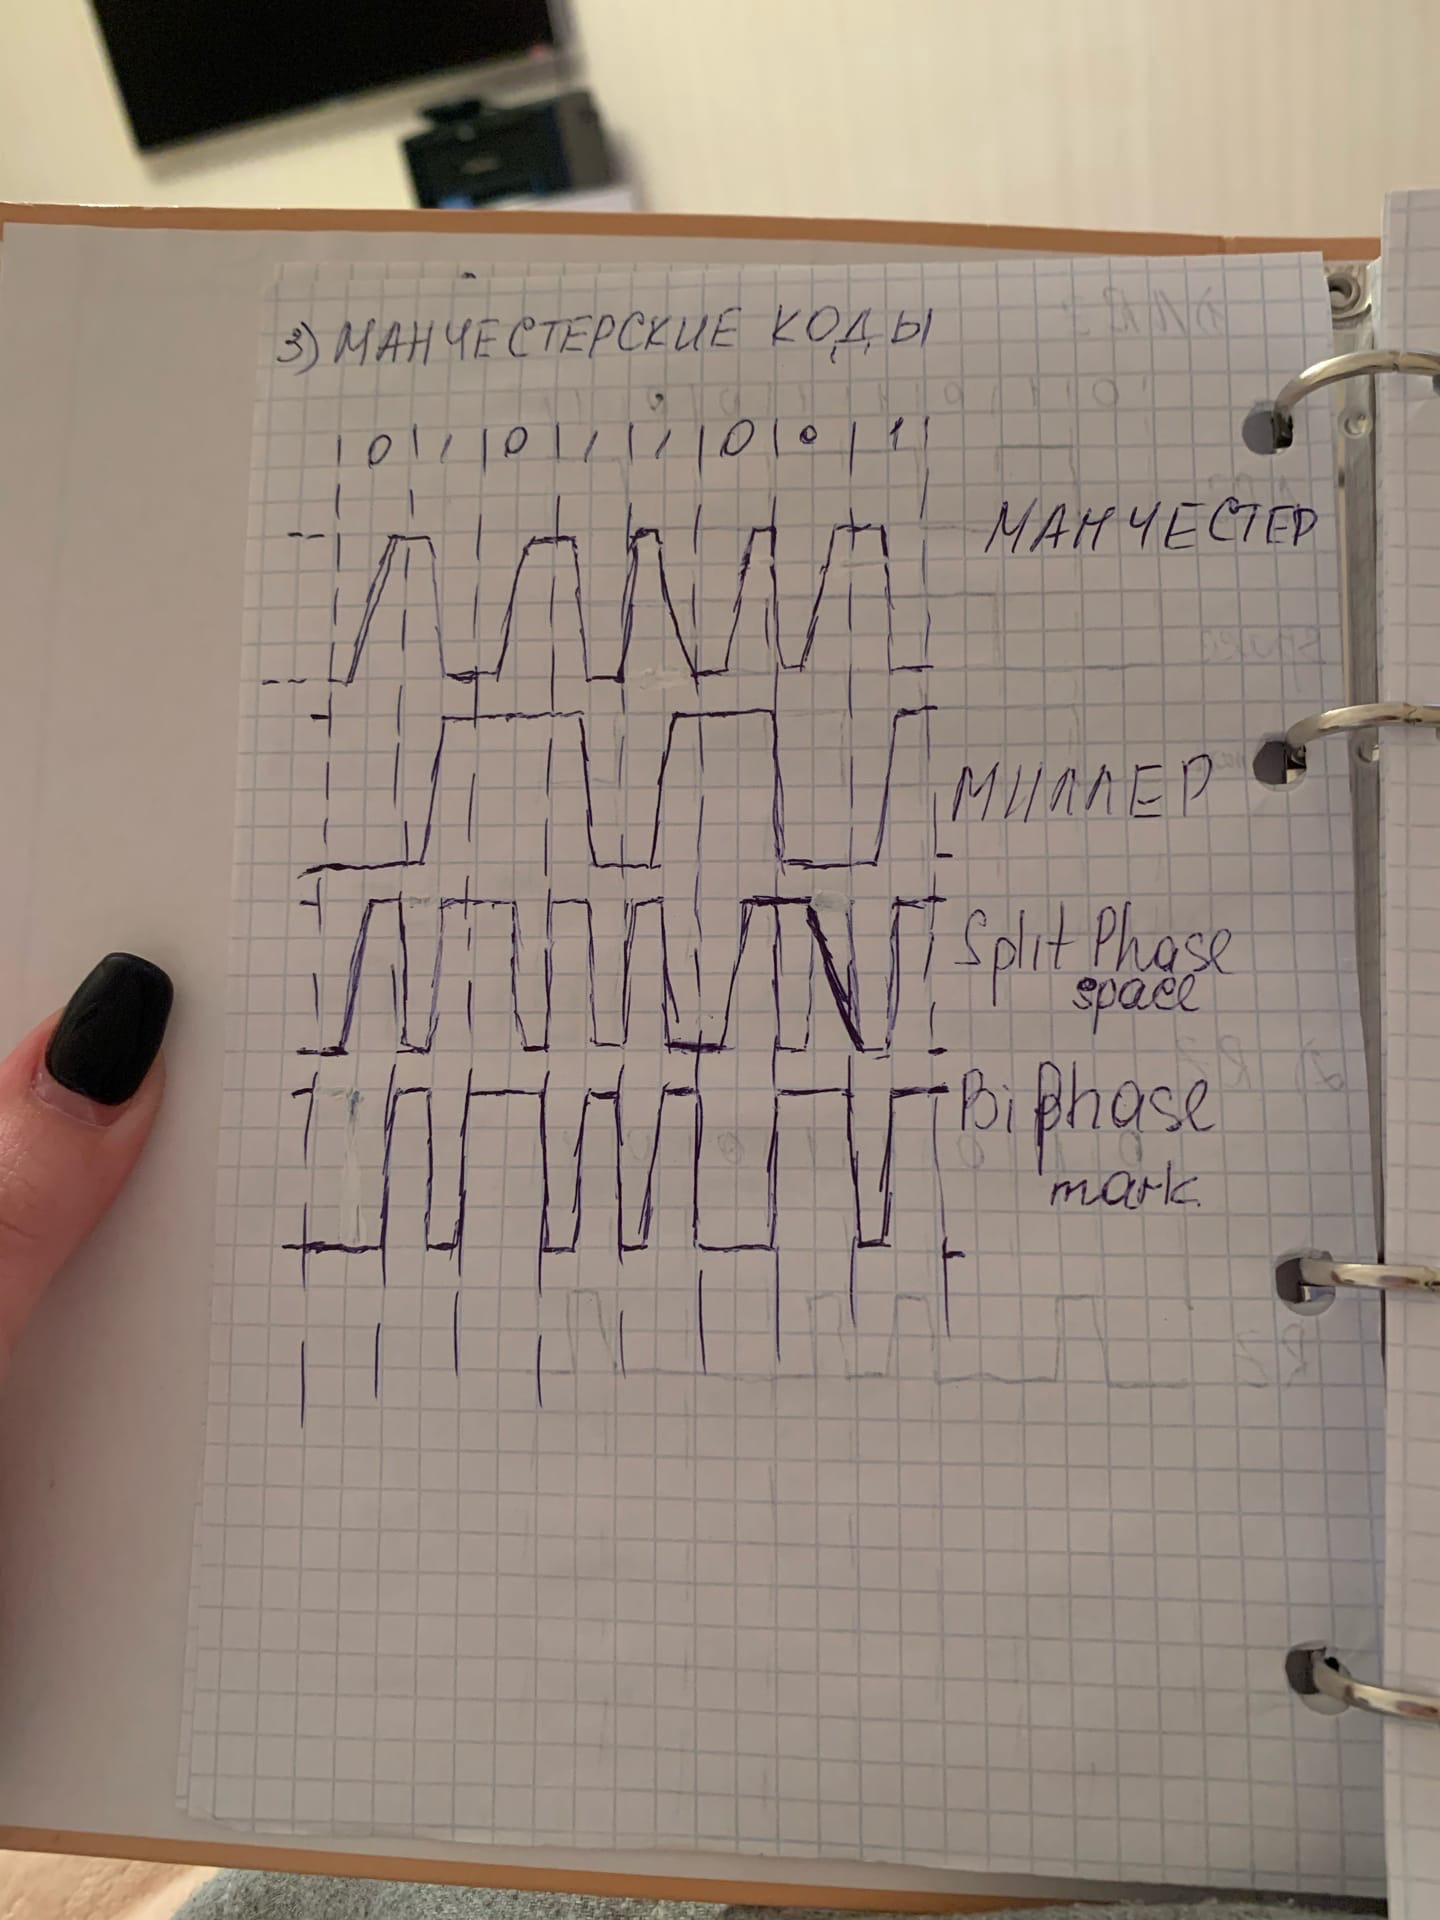 3) МАНЧЕСТЕРСКИЕ КОДЫ
| 0 | 1 | 0 | 1 | 1 | 0 | 0 | 1 |
МАНЧЕСТЕР
МИЛЛЕР
Split Phase
space
Bi phase
mark.